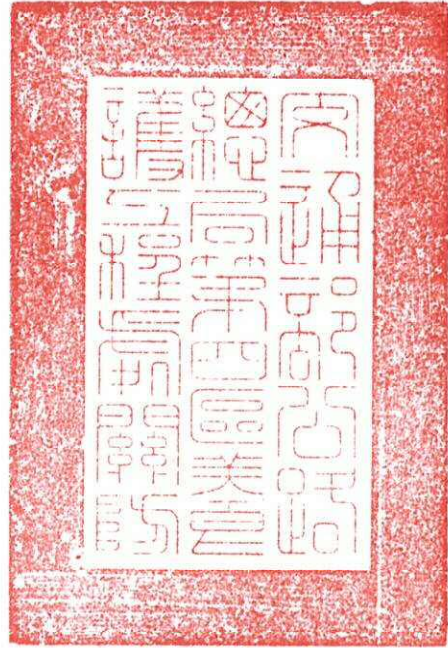 交通部公路
總局第四區養
護工程處關防